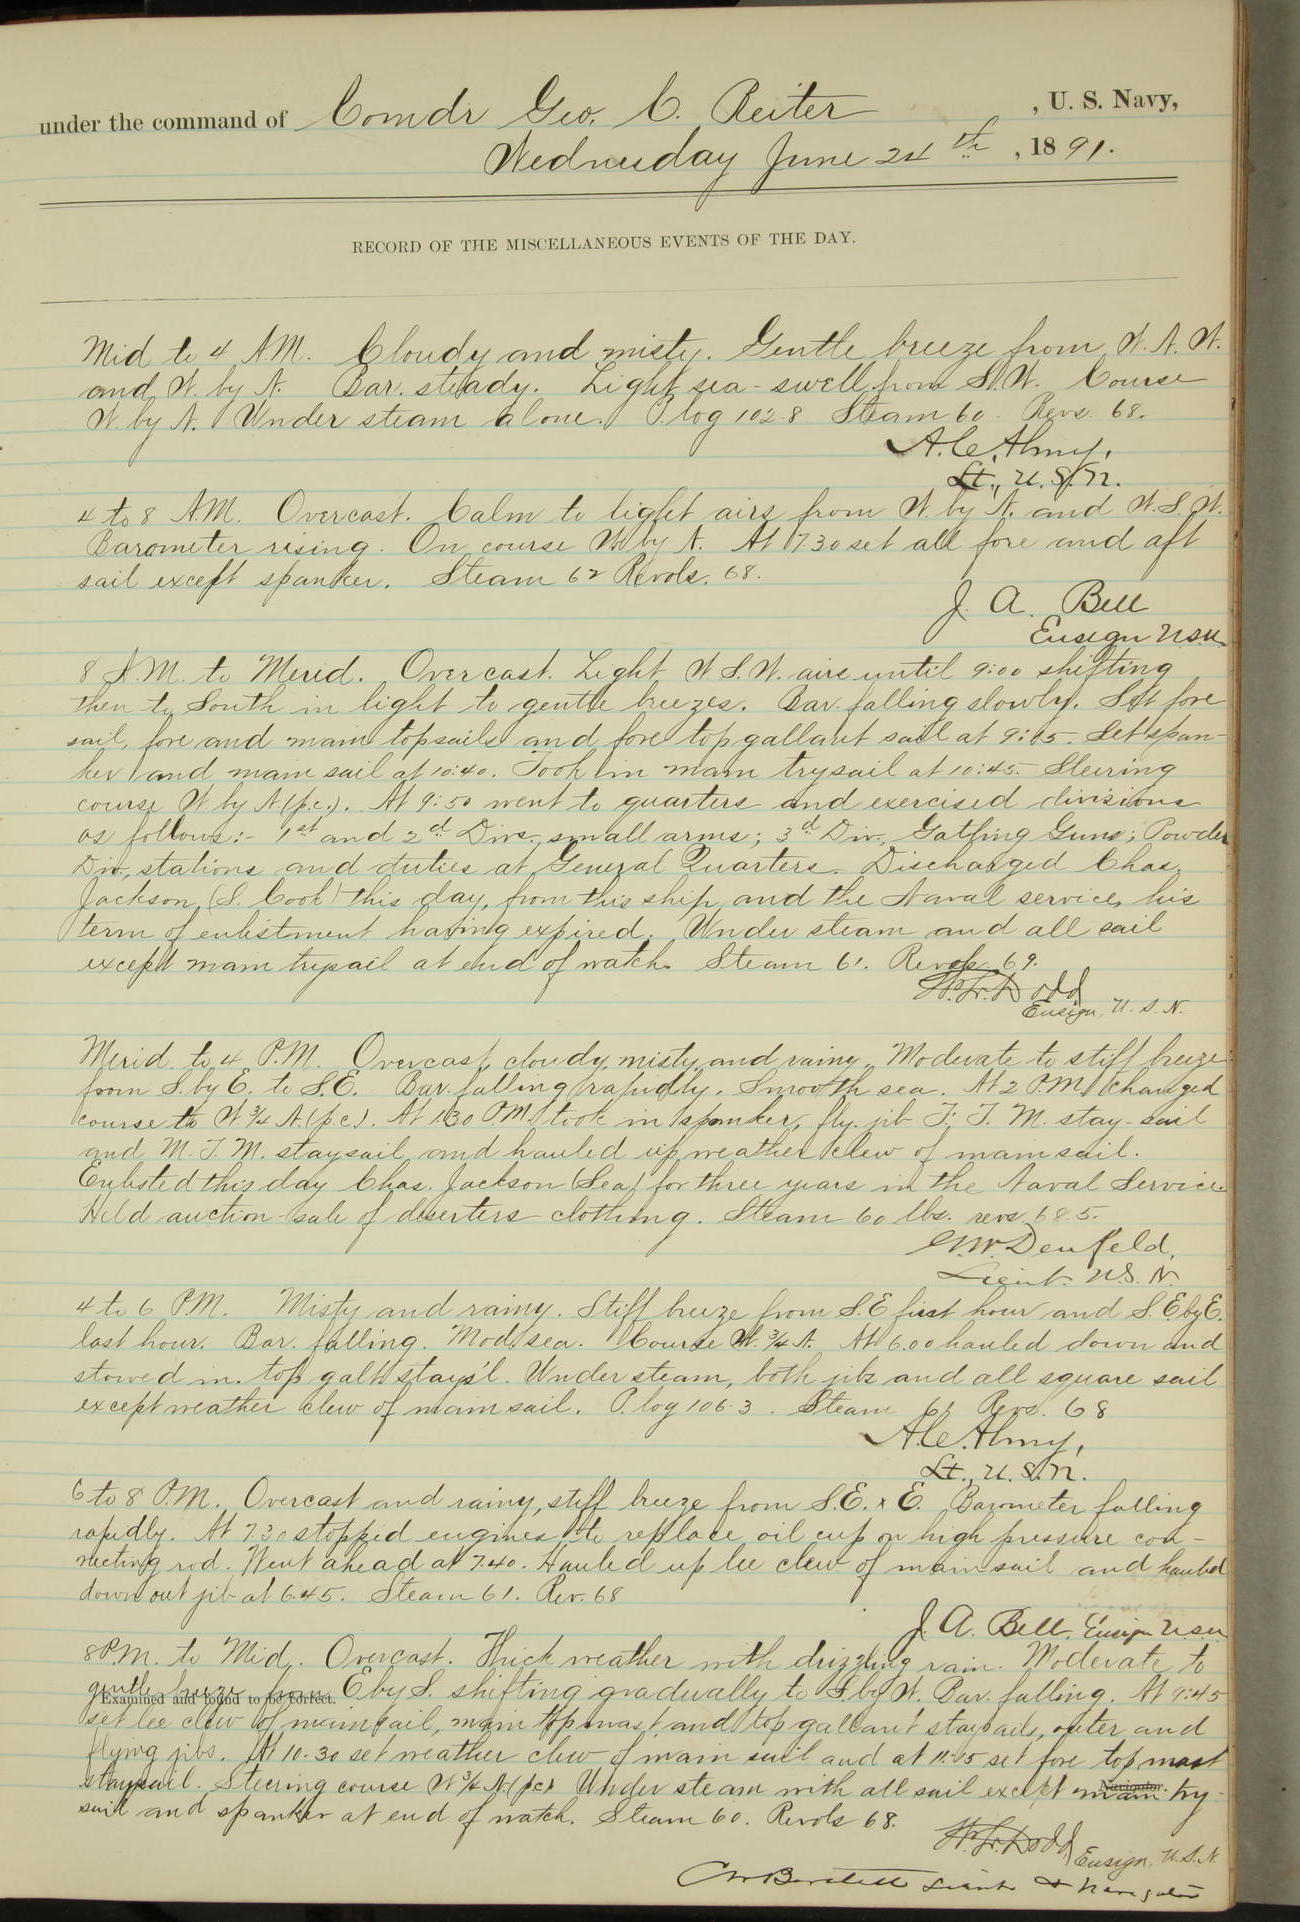 under the command of Comdr Geo. C. Reiter , U. S. Navy,
Wednesday June 24th , 1891.
RECORD OF THE MISCELLANEOUS EVENTS OF THE DAY.
Mid to 4 A.M. Cloudy and misty. Gentle breeze from W. N. W.
and W. by N. Bar. steady. Light sea-swell from S.W. Course
W. by N. Under steam alone. P. log 102.8 Steam 60. Revs. 68.
A. C. Almy,
Lt., U.S.N.
4 to 8 A.M. Overcast. Calm to light airs from W. by N. and W.S.W.
Barometer rising. On course W. by N. At 7 30 set all fore and aft
sail except spanker. Steam 62 Revols. 68.
J. A. Bell
Ensign U.S.N.
8 A.M. to Merid. Overcast. Light W.S.W. airs until 9:00 shifting
then to South in light to gentle breezes. Bar. falling slowly. Set fore
sail, fore and main topsails and fore topgallant sail at 9:15. Set span-
ker and main sail at 10:40. Took in main trysail at 10:45. Steering
course W by N (p.c.). At 9:50 went to quarters and exercised divisions
as follows:- 1st and 2d Divs., small arms; 3d Div., Gatling Guns; Powder
Div., stations and duties at General Quarters. Discharged Chas.
Jackson, (S. Cook) this day, from this ship and the Naval service, his
term of enlistment having expired. Under steam and all sail
except main trysail at end of watch. Steam 61. Revols. 69.
Dodd
Ensign, U. S. N.
Merid. to 4 P.M. Overcast, cloudy, misty and rainy. Moderate to stiff breeze
from S. by E. to S.E. Bar. falling rapidly. Smooth sea. At 2 P.M. changed
course to W. ¾ N. (p c). At 1:30 P.M. took in spanker, fly. jib F. T. M. stay-sail
and M. T. M. staysail and hauled up weather clew of mainsail.
Enlisted this day Chas. Jackson (Sea) for three years in the Naval Service.
Held auction-sale of deserters clothing. Steam 60 lbs. revs 68.5.
Denfeld,
Lieut. U.S.N.
4 to 6 P.M. Misty and rainy. Stiff breeze from S.E. first hour and S.E. by E.
last hour. Bar. falling. Mod. sea. Course W. ¾ N. At 6.00 hauled down and
stowed m. top gal't stays'l. Under steam, both jibs and all square sail
except weather clew of mainsail. P. log 106.3. Steam 61 Revs. 68
A. C. Almy,
Lt., U.S.N.
6 to 8 P.M. Overcast and rainy, stiff breeze from S.E. x E. Barometer falling
rapidly. At 7.30 stopped engines to replace oil cup on high pressure con-
necting rod. Went ahead at 7.40. Hauled up lee clew of main sail and hauled
down out jib at 6.45. Steam 61. Rev. 68
J. A. Bell, Ensign U.S.N.
8 P.M. to Mid. Overcast. Thick weather with drizzling rain. Moderate to
gentle breeze from E by S. shifting gradually to S by W. Bar. falling. At 9:45
Examined and found to be correct.
set lee clew of mainsail, main topmast and top gallant staysails, outer and
flying jibs. At 10.30 set weather clew of main sail and at 11:15 set fore topmast
staysail. Steering course W ¾ N (p c) Under steam with all sail except main try-
Navigator.
sail and spanker at end of watch. Steam 60. Revols 68.
Dodd Ensign, U.S.N.
Lieut & Navigator